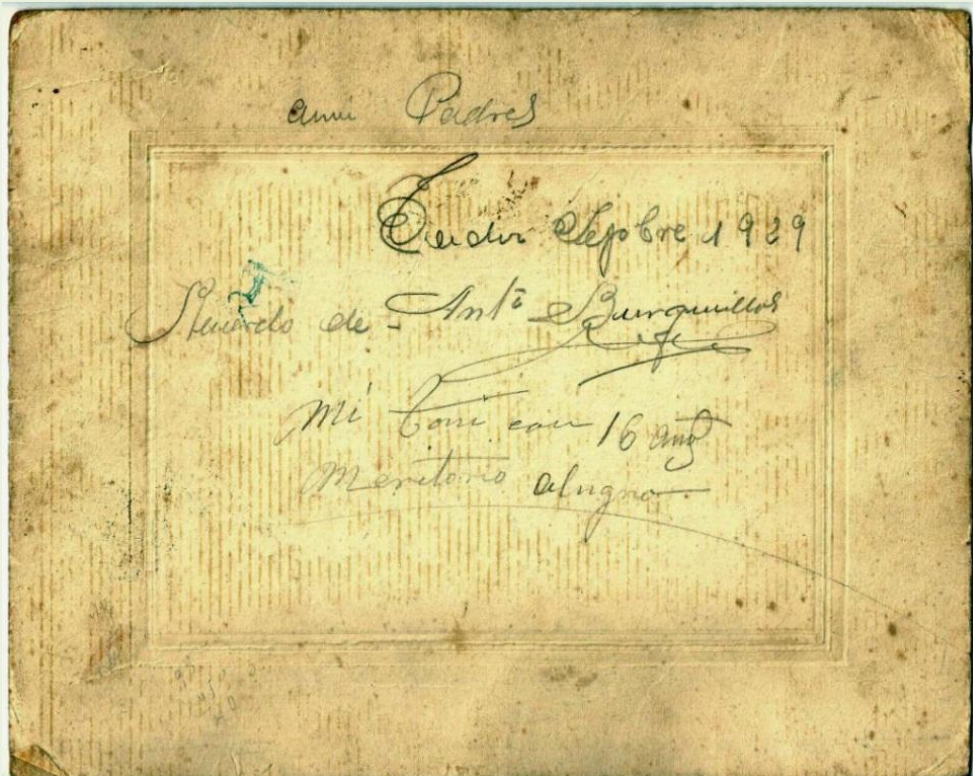 a mi Padres
Sepbre 1929
Recuerdo de - Antº Burguillos
Mi Toni con 16 años
Meritorio alugno